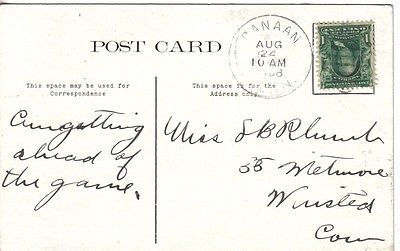 CANAAN
AUG
24
10 AM
'08
POST CARD
This space may be used for
Correspondence
This space is for the
Address only.
Am getting
ahead of
the game.
Miss S B Rhumb
55 Wetmore
Winsted
Conn